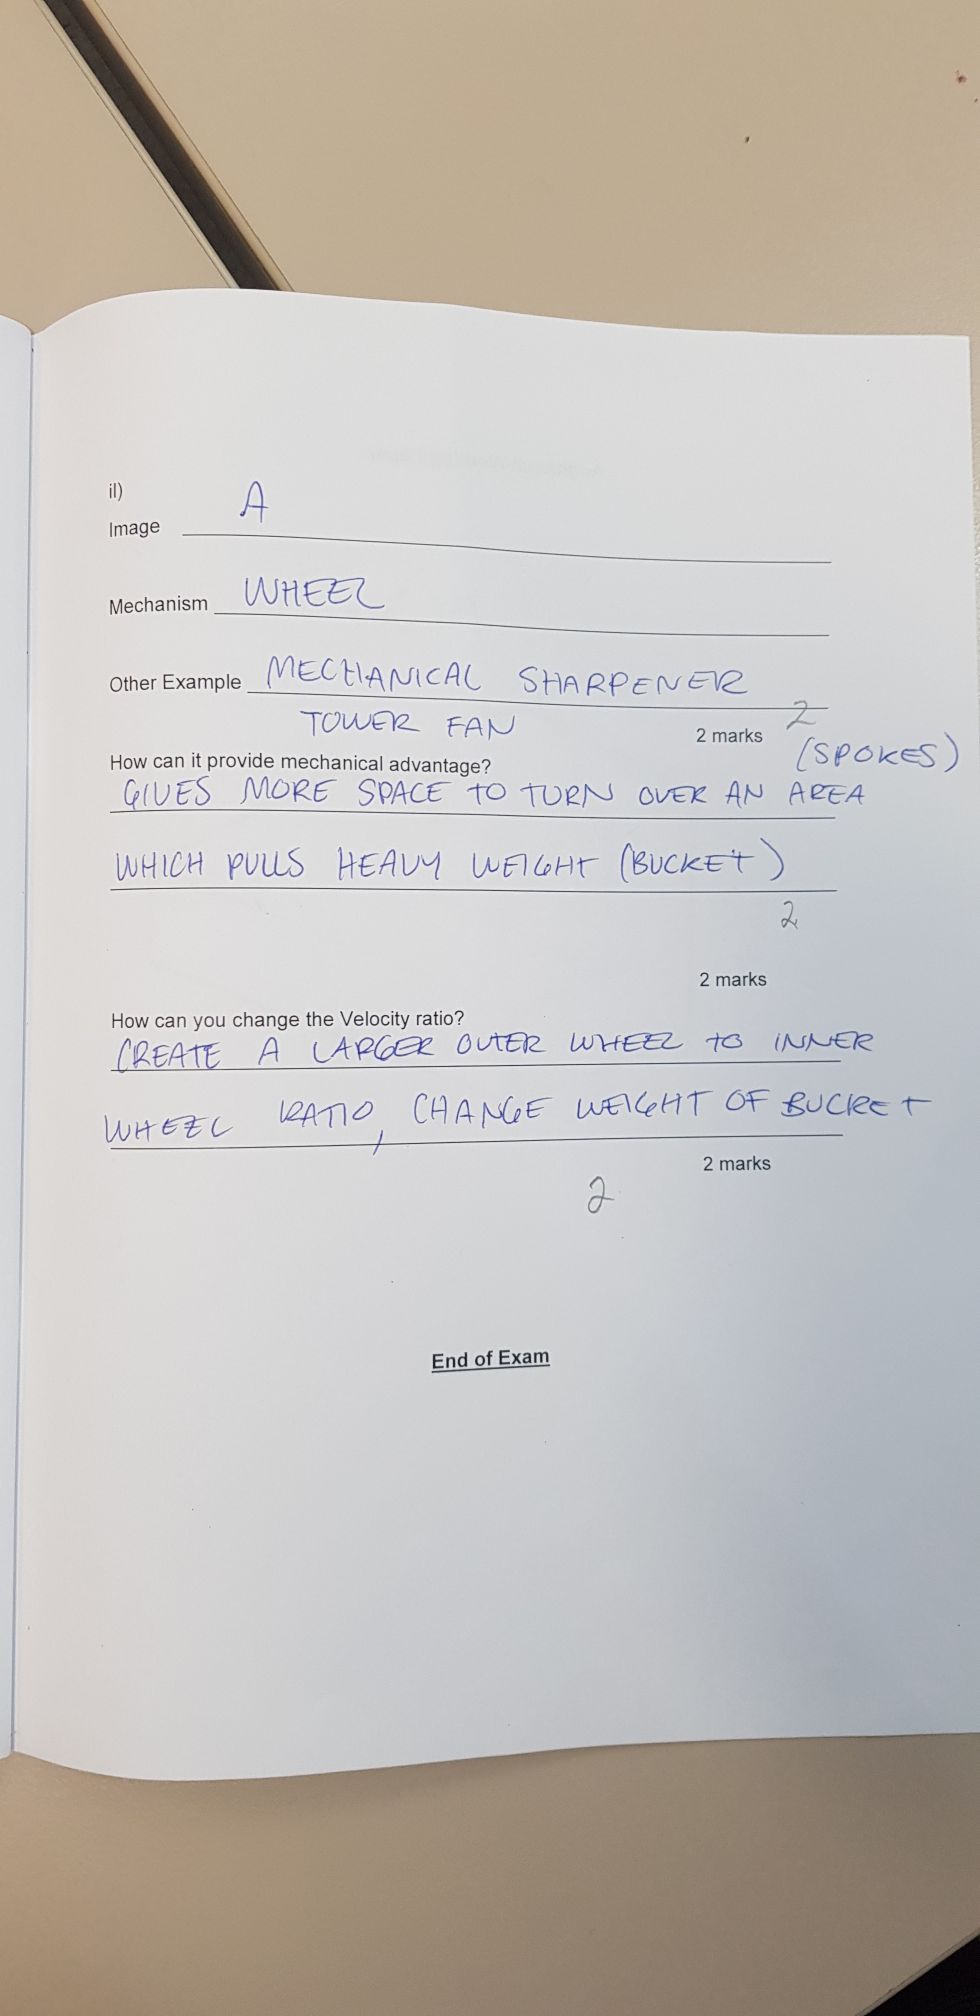 il)
Image A
Mechanism WHEEL
Other Example MECHANICAL SHARPENER
TOWER FAN
2 marks 2
(SPOKES)
How can it provide mechanical advantage?
GIVES MORE SPACE TO TURN OVER AN AREA
WHICH PULLS HEAVY WEIGHT (BUCKET)
2
2 marks
How can you change the Velocity ratio?
CREATE A LARGER OUTER WHEEL TO INNER
WHEEL RATIO, CHANGE WEIGHT OF BUCKET
2 marks
2
End of Exam